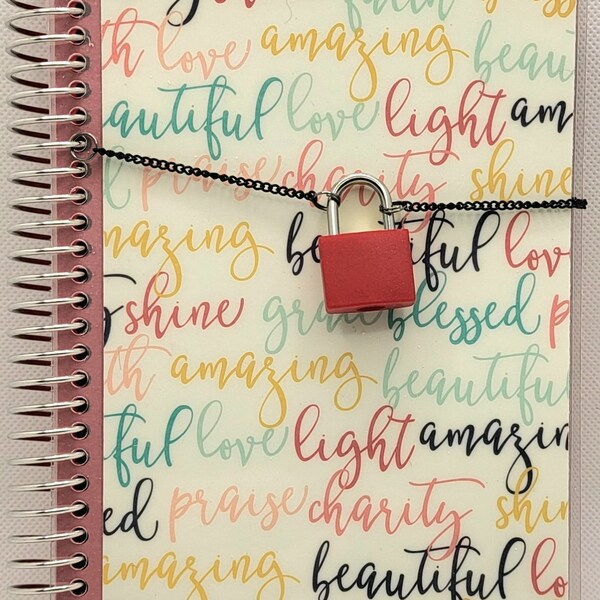 faith
th love amazing beautiful
beautiful love light amazing
praise charity shine
amazing beautiful love
shine grace blessed
th amazing beautiful
tiful love light amazing
ed praise charity shin
amazing beautiful lo